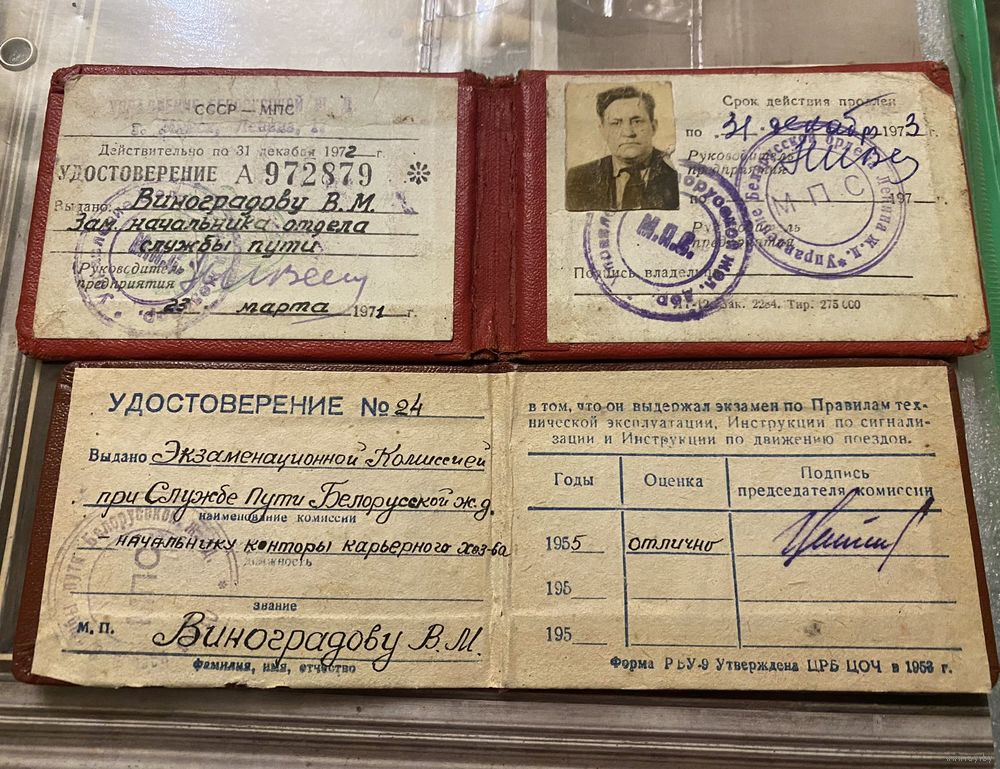 СССР — МПС
Действительно по 31 декабря 1972 г.
УДОСТОВЕРЕНИЕ А 972879
Выдано Виноградову В.М.
Зам. начальника отдела
службы пути
Руководитель
предприятия
23 марта 1971 г.
Срок действия продлен
по 31 декабря 1973 г.
Руководитель
предприятия
М П С
по 197 г.
Руководитель
предприятия
М.П.С.
Подпись владельца
Зак. 2284. Тир. 275 000
УДОСТОВЕРЕНИЕ № 24
Выдано Экзаменационной Комиссией
при Службе Пути Белорусской ж.д.
наименование комиссии
начальнику конторы карьерного хоз-ва
должность
звание
М. П. Виноградову В.М.
фамилия, имя, отчество
в том, что он выдержал экзамен по Правилам тех-
нической эксплуатации, Инструкции по сигнали-
зации и Инструкции по движению поездов.
Годы Оценка Подпись
председателя комиссии
1955 отлично
195
195
Форма РБУ-9 Утверждена ЦРБ ЦОЧ в 1953 г.